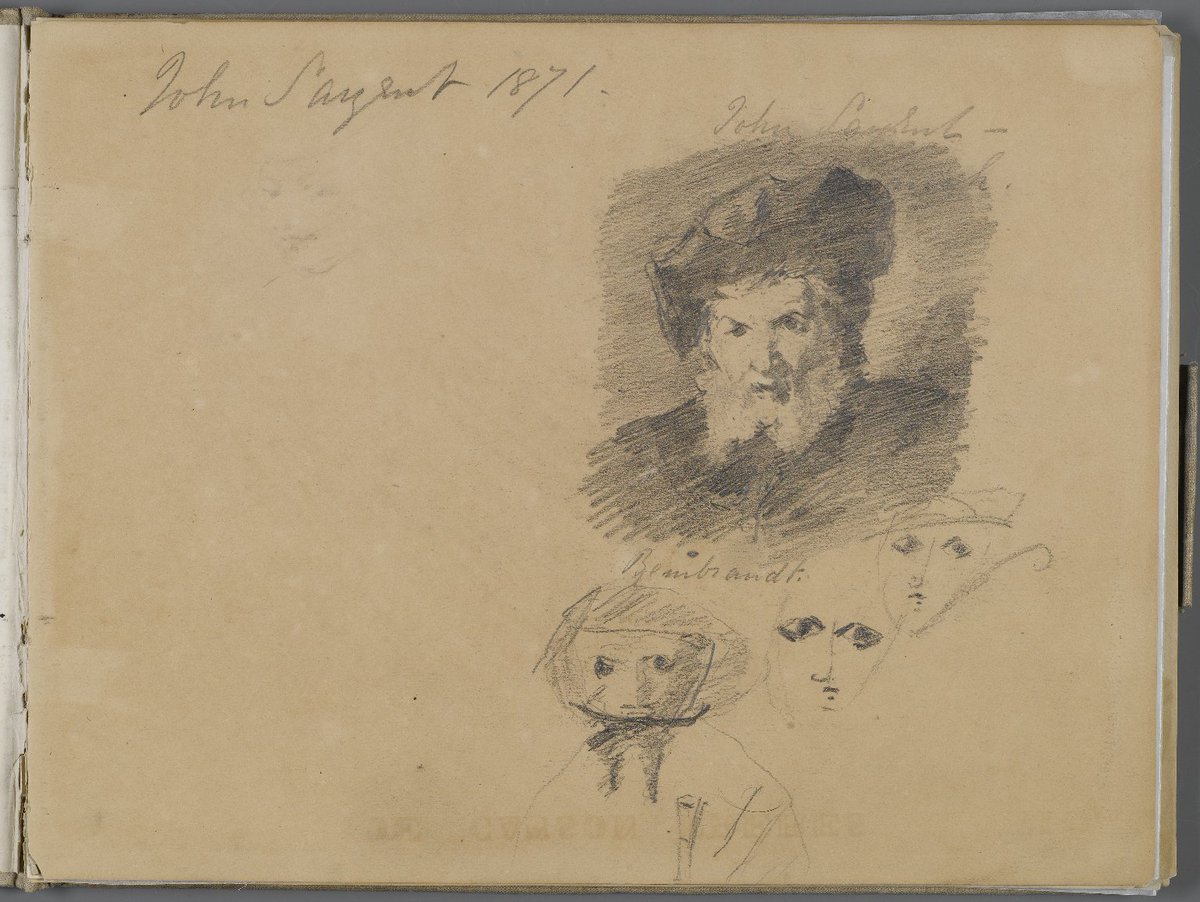 John Sargent 1871.
John Sargent –
Rembrandt.